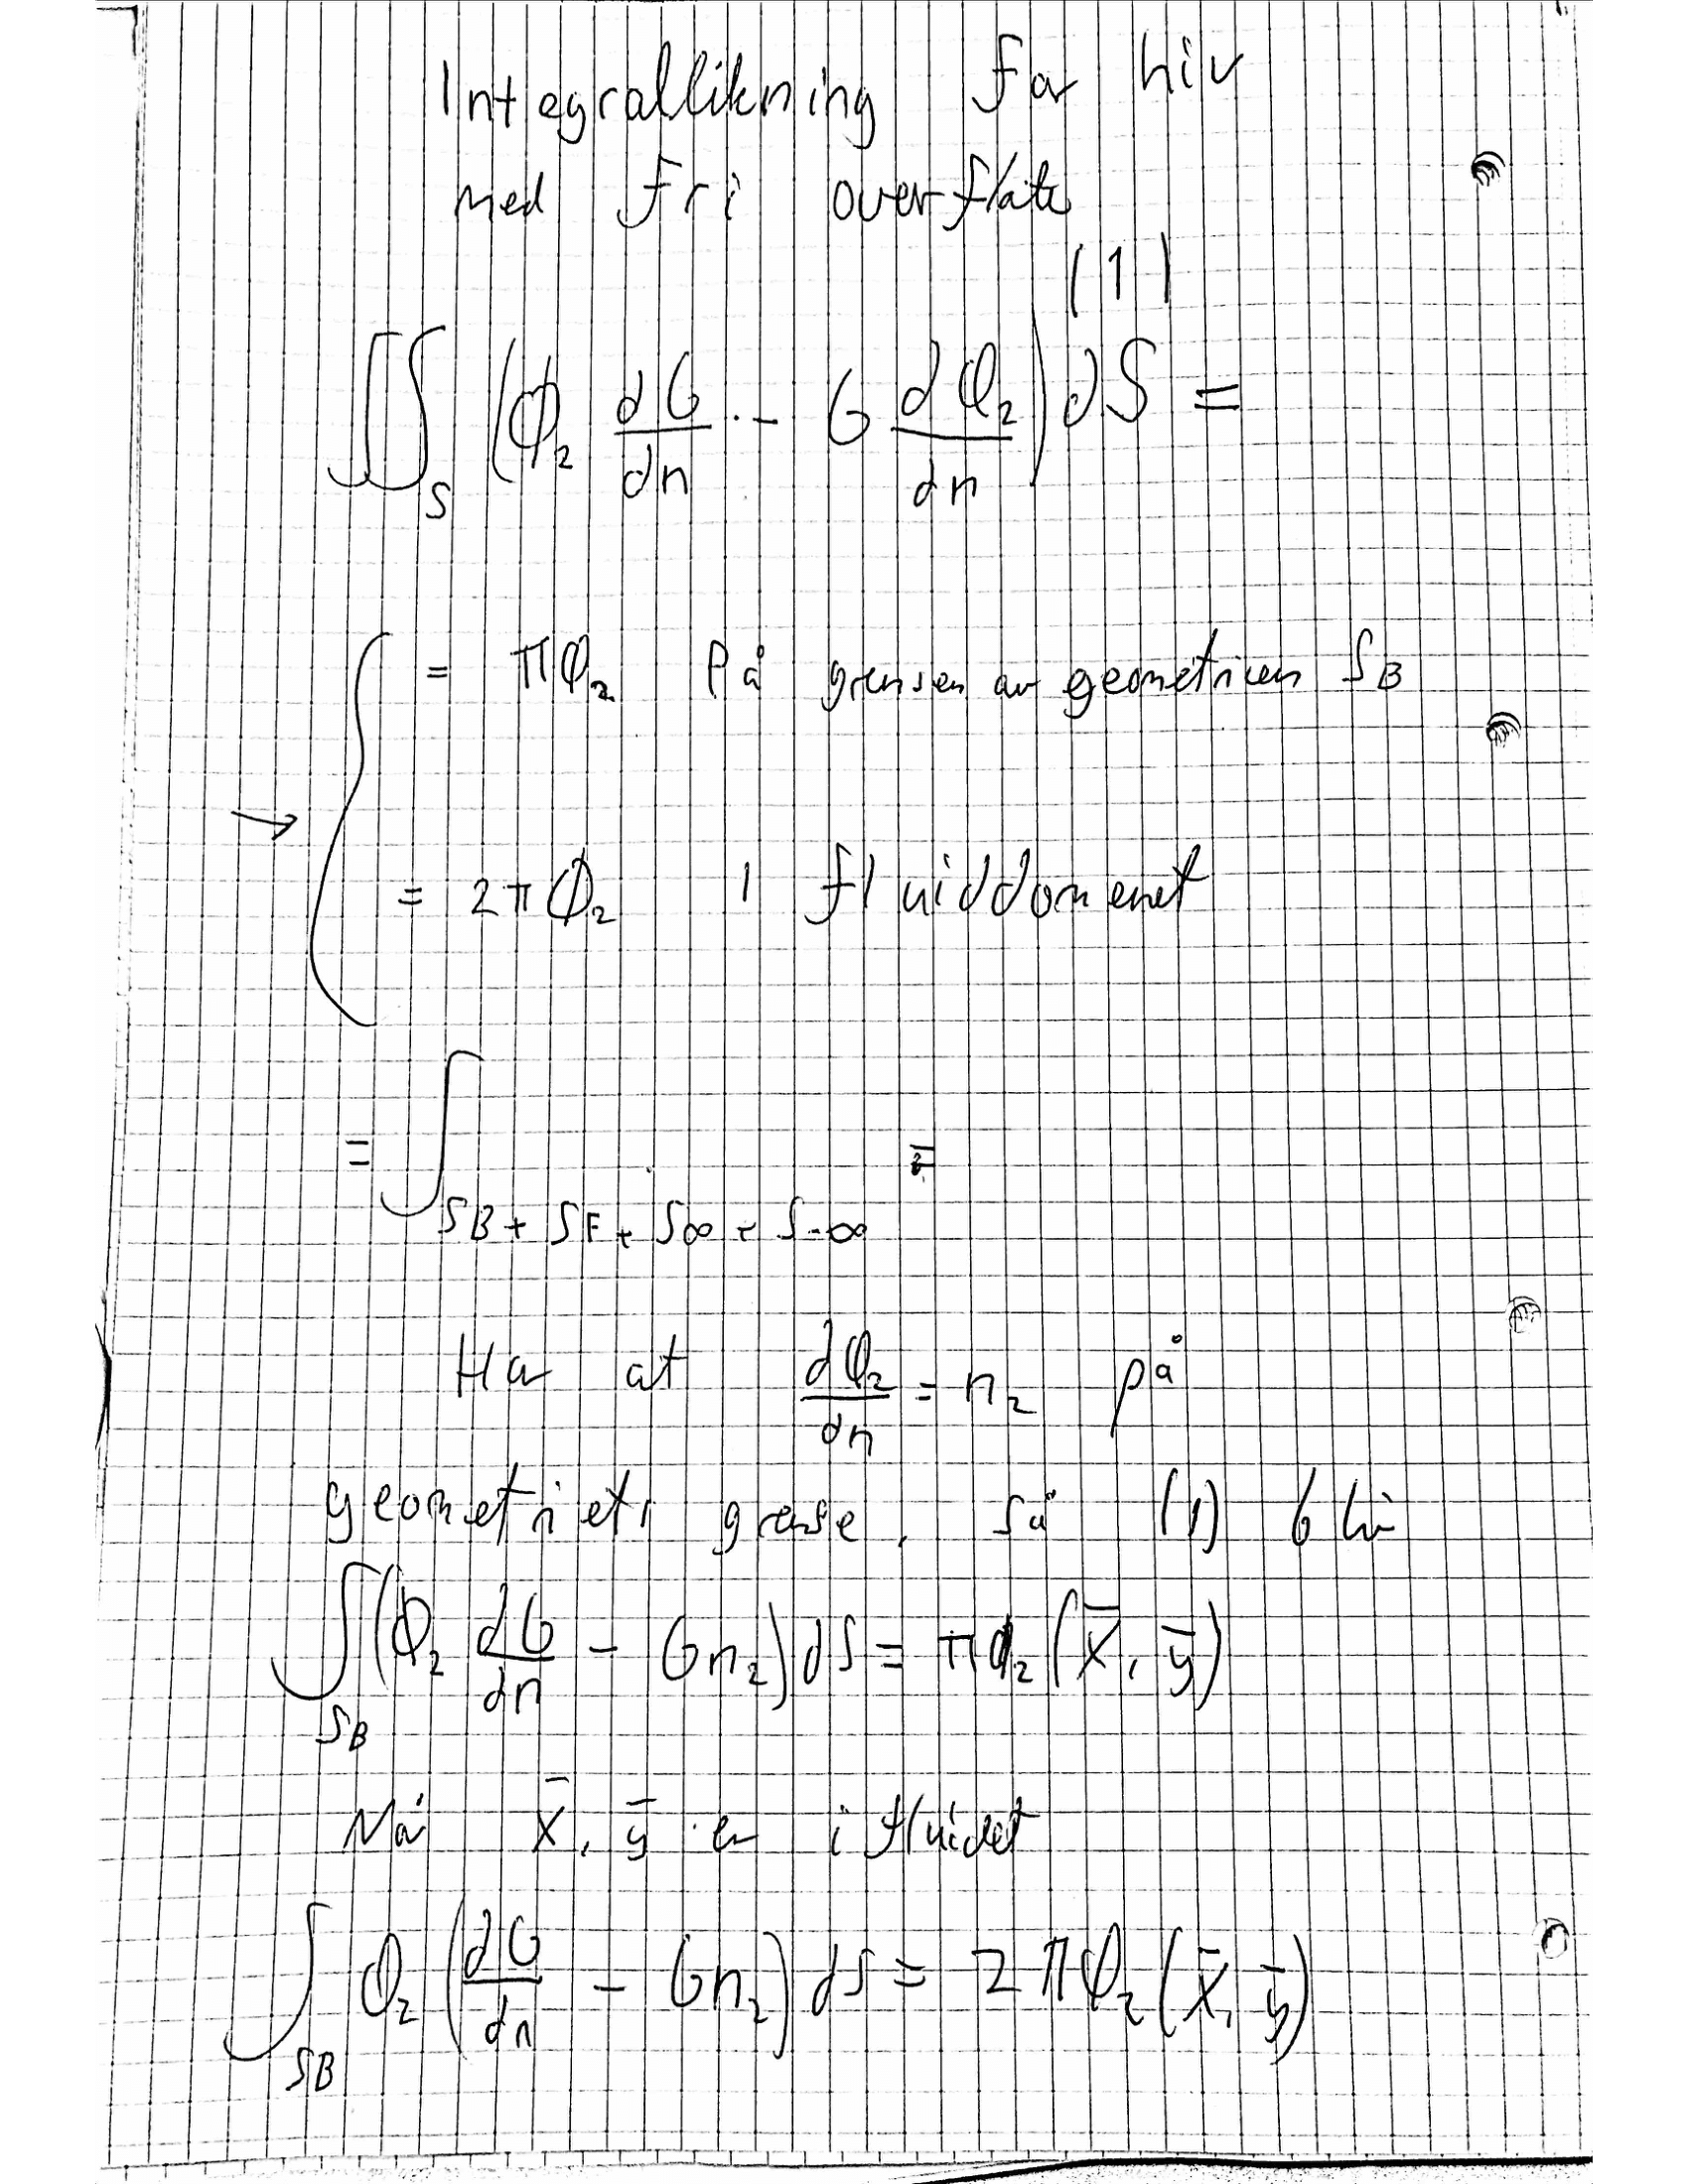 Integrallikning for hiv
med fri overflate
(1)
∬_S (φ₂ dG/dn - G dφ₂/dn) dS =
= πφ₂ På grensen av geometrien S_B
→ {
= 2πφ₂ I fluiddomenet
= ∫_{S_B + S_F + S_∞ + S_-∞} =
Har at dφ₂/dn = n₂ på
geometriets grense, så (1) blir
∫_{S_B} (φ₂ dG/dn - Gn₂) dS = πφ₂(x̄, ȳ)
Når x̄, ȳ er i fluidet
∫_{S_B} φ₂ (dG/dn - Gn₂) dS = 2πφ₂(x̄, ȳ)